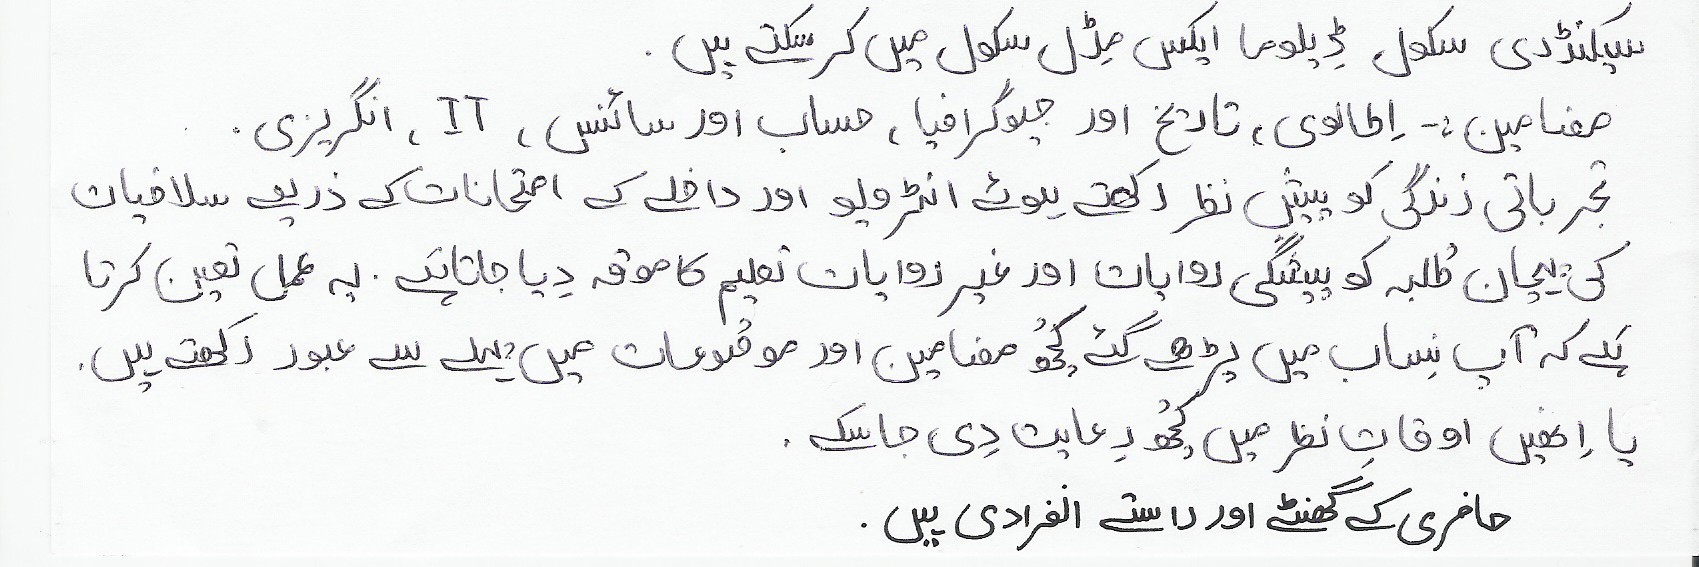 سیکنڈری سکول ڈِپلومہ ایکس مِڈل سکول میں کر سکتے ہیں .
مضامین :- اِطالوی ، تاریخ اور جیوگرافیا ، حساب اور سائنس ، IT ، انگریزی .
تجرباتی زندگی کو پیشِ نظر رکھتے ہوئے انٹرویو اور داخلے کے امتحانات کے ذریعے صلاحیات
کی پہچان طُلبہ کو پیشگی روایات اور غیر روایات تعلیم کا موقعہ دِیا جاتا ہَے . یہ عمل تعین کرتا
ہَے کہ آپ نِساب میں پڑھے گئے کُچھ مضامین اور موضُوعات میں پہلے سے عبور رکھتے ہیں .
یا اِنھیں اوقاتِ نظر میں کُچھ رِعایت دِی جا سکے .
حاضری کے گھنٹے اور راستے انفرادی ہیں .